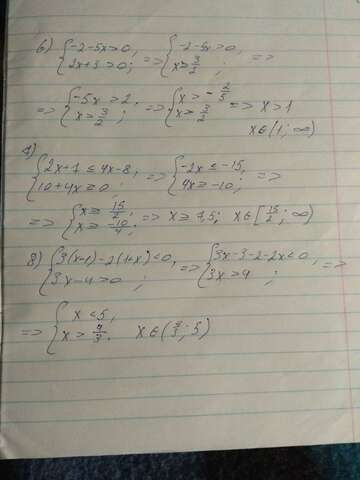 6) { -2-5x>0, 2x+3>0; => { -2-5x>0, x>3/2; =>
=> { -5x>2, x>3/2; => { x>-2/5, x>3/2 => x>1
x∈(1; ∞)
7) { 2x+7≤4x-8, 10+4x≥0; => { -2x≤-15, 4x≥-10; =>
=> { x≥15/2, x≥-10/4; => x≥7,5; x∈[15/2; ∞)
8) { 3(x-1)-2(1+x)<0, 3x-4>0; => { 3x-3-2-2x<0, 3x>4; =>
=> { x<5, x>4/3. x∈(4/3; 5)